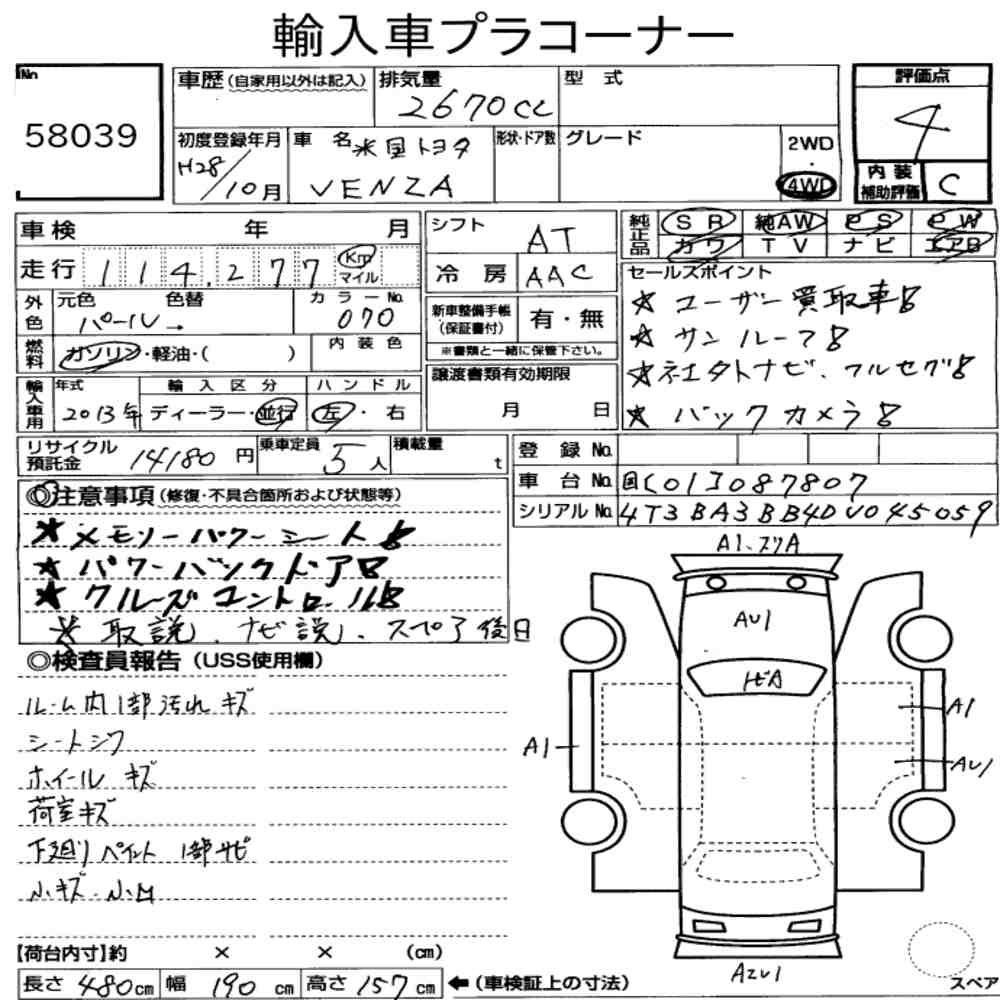 輸入車プラコーナー
No. 58039
車歴(自家用以外は記入) 排気量 2670CC 型式
評価点 4
初度登録年月 H28/10月 車名 米国トヨタ VENZA 形状・ドア数 グレード 2WD・4WD
内装補助評価 C
車検 年 月
走行 114,277 Km マイル
シフト AT
冷房 AAC
純正品 SR 純AW PS PW
カワ TV ナビ エアB
外色 元色 色替 パール→ カラーNo. 070
燃料 ガソリン・軽油・( ) 内装色
新車整備手帳(保証書付) 有・無
※書類と一緒に保管下さい。
輸入車用 年式 2013年 輸入区分 ディーラー・並行 ハンドル 左・右
譲渡書類有効期限 月 日
セールスポイント
★ユーザー買取車
★サンルーフ
★社外ナビ、フルセグ
★バックカメラ
リサイクル預託金 14180円 乗車定員 5人 積載量 t
登録No.
車台No. 国[01]087807
シリアルNo. 4T3BA3BB4DU045059
◎注意事項(修復・不具合箇所および状態等)
★メモリーパワーシート
★パワーバックドア
★クルーズコントロール
★取説、ナビ説、スペア後日
◎検査員報告(USS使用欄)
ルーム内1部汚れ キズ
シートシワ
ホイール キズ
荷室キズ
下廻りペイント 1部サビ
小キズ・小凹
A1、スリA
AU1
トビA
A1
A1
AU1
AZU1
スペア
【荷台内寸】約 × × (cm)
長さ 480cm 幅 190cm 高さ 157cm ←(車検証上の寸法)